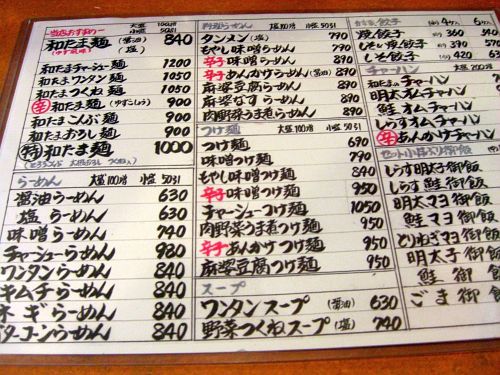 当店おすすめ 大盛 100円増 小盛 50円引
和たま麺 (醤油) 840
(ゆず風味) (塩)
和たまチャーシュー麺 1200
和たまワンタン麺 1050
和たまつくね麺 1050
辛 和たま麺 (ゆずこしょう) 900
和たまこんぶ麺 900
和たまおろし麺 900
特 和たま麺 1000
らーめん 大盛 100円増 小盛 50円引
醤油らーめん 630
塩らーめん 630
味噌らーめん 740
チャーシューらーめん 980
ワンタンらーめん 840
キムチらーめん 840
ネギらーめん 840
バターコーンらーめん 840
料理らーめん 大盛 100円増 小盛 50円引
タンメン (塩) 790
もやし味噌らーめん 790
辛子味噌らーめん 790
辛子あんかけらーめん (醤油) 890
麻婆豆腐らーめん 890
麻婆なすらーめん 890
肉野菜うま煮らーめん 890
つけ麺 大盛 100円増 小盛 50円引
つけ麺 690
味噌つけ麺 790
もやし味噌つけ麺 840
辛子味噌つけ麺 840
チャーシューつけ麺 1050
肉野菜うま煮つけ麺 950
辛子あんかけつけ麺 950
麻婆豆腐つけ麺 950
スープ
ワンタンスープ (醤油) 630
野菜つくねスープ (塩) 740
餃子 (4ケ) 4
焼餃子 360 540
しそ焼餃子 370
しそ餃子 420 63
チャーハン 大盛 200円
和たまのチャーハン
明太オムチャーハン
鮭オムチャーハン
しらすオムチャーハン
辛子あんかけチャーハン
セット小丼ぶり御飯
しらす明太子御飯
しらす鮭御飯
明太マヨ御飯
鮭マヨ御飯
とりねぎマヨ御飯
明太子御飯
鮭御飯
ごま御飯